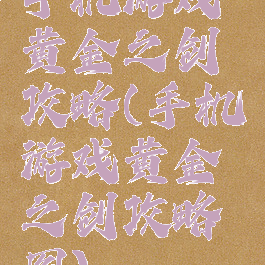 手机游戏
黄金之剑
攻略(手机
游戏黄金
之剑攻略
图)